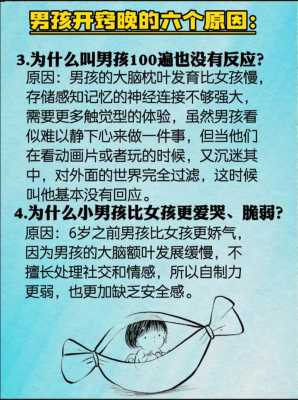 男孩开窍晚的六个原因：
3.为什么叫男孩100遍也没有反应?
原因：男孩的大脑枕叶发育比女孩慢，
存储感知记忆的神经连接不够强大，
需要更多触觉型的体验，虽然男孩看
似难以静下心来做一件事，但当他们
在看动画片或者玩的时候，又沉迷其
中，对外面的世界完全过滤，这时候
叫他基本没有回应。
4.为什么小男孩比女孩更爱哭、脆弱?
原因：6岁之前男孩比女孩更娇气，
因为男孩的大脑额叶发展缓慢，不
擅长处理社交和情感，所以自制力
更弱，也更加缺乏安全感。